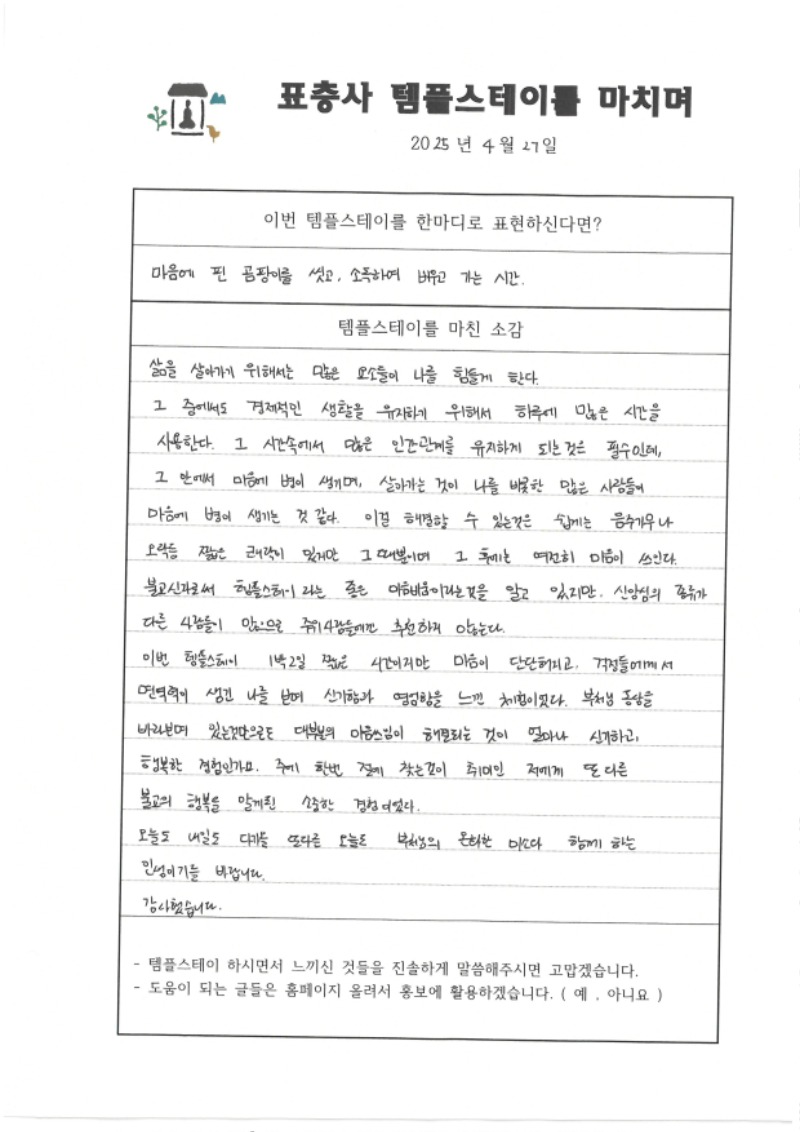 표충사 템플스테이를 마치며
2025 년 4 월 27일
이번 템플스테이를 한마디로 표현하신다면?
마음에 핀 곰팡이를 씻고, 소독하여 비우고 가는 시간.
템플스테이를 마친 소감
삶을 살아가기 위해서는 많은 요소들이 나를 힘들게 한다.
그 중에서도 경제적인 생활을 유지하기 위해서 하루에 많은 시간을
사용한다. 그 시간속에서 많은 인간관계를 유지하게 되는것은 필수인데,
그 안에서 마음에 병이 생기며, 살아가는 것이 나를 비롯한 많은 사람들이
마음에 병이 생기는 것 같다. 이걸 해결할 수 있는것은 쉽게는 음주가무나
오락등 짧은 쾌락이 있지만 그때뿐이며 그 후에는 여전히 마음이 쓰인다.
불교신자로써 템플스테이라는 좋은 마음비움이라는것을 알고 있지만, 신앙심의 종류가
다른 사람들이 많으므로 주위사람들에겐 추천하지 않는다.
이번 템플스테이 1박2일 짧은 시간이지만 마음이 단단해지고, 걱정들에게서
면역력이 생긴 나를 보며 신기함과 영험함을 느낀 체험이였다. 부처님 품안을
바라보며 있는것만으로도 대부분의 마음쓰임이 해결되는 것이 얼마나 신기하고,
행복한 경험인가요. 주에 한번 절에 찾는것이 취미인 저에게 또 다른
불교의 행복을 알게된 소중한 경험이였다.
오늘도 내일도 다가올 또다른 오늘도 부처님의 온화한 미소와 함께 하는
인생이기를 바랍니다.
감사했습니다.
- 템플스테이 하시면서 느끼신 것들을 진솔하게 말씀해주시면 고맙겠습니다.
- 도움이 되는 글들은 홈페이지 올려서 홍보에 활용하겠습니다. ( 예 , 아니요 )